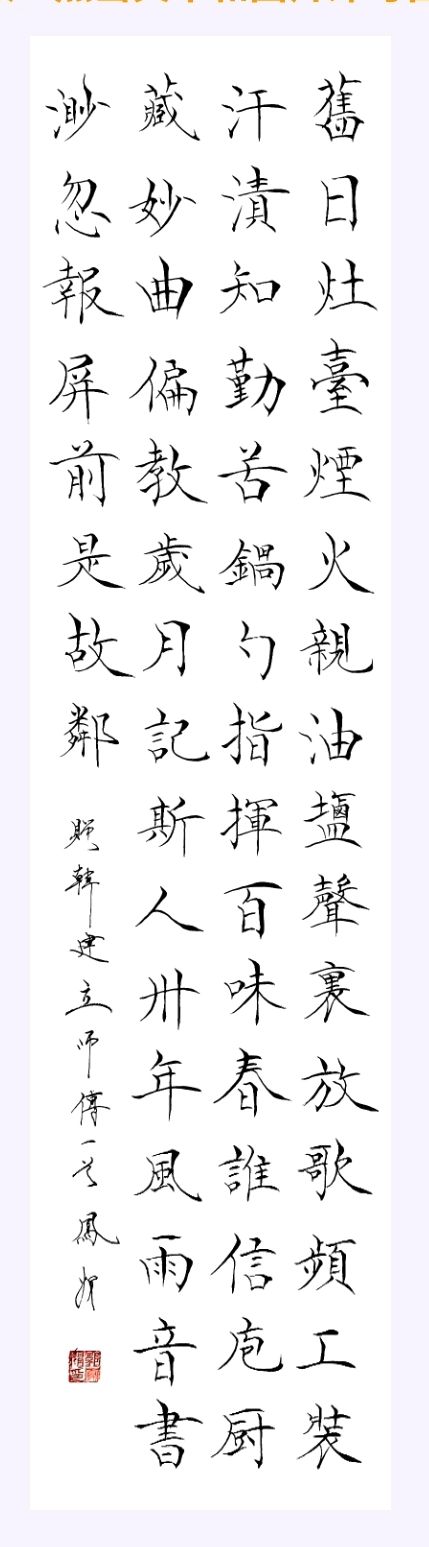 舊日灶臺煙火親油鹽聲裏放歌頻工裝
汗漬知勤苦鍋勺指揮百味春誰信庖厨
藏妙曲偏教歲月記斯人卅年風雨音書
渺忽報屏前是故鄰
韓建立師傅一首